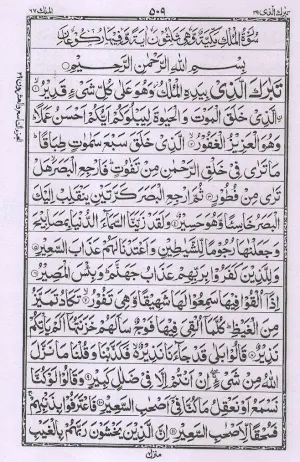 تبرك الذى ٢٩ ٥٠٩ الملك ٦٧
سُوْرَةُ الْمُلْكِ مَكِّيَّةٌ وَّهِيَ ثَلٰثُوْنَ اٰيَةً وَّفِيْهَا رُكُوْعَانِ
بِسْمِ اللهِ الرَّحْمٰنِ الرَّحِيْمِ
تَبٰرَكَ الَّذِىْ بِيَدِهِ الْمُلْكُ وَهُوَ عَلٰى كُلِّ شَىْءٍ قَدِيْرُ
الَّذِىْ خَلَقَ الْمَوْتَ وَ الْحَيٰوةَ لِيَبْلُوَكُمْ اَيُّكُمْ اَحْسَنُ عَمَلًا
وَهُوَ الْعَزِيْزُ الْغَفُوْرُ الَّذِىْ خَلَقَ سَبْعَ سَمٰوٰتٍ طِبَاقًا
مَا تَرٰى فِىْ خَلْقِ الرَّحْمٰنِ مِنْ تَفٰوُتٍ فَارْجِعِ الْبَصَرَ هَلْ
تَرٰى مِنْ فُطُوْرٍ ثُمَّ ارْجِعِ الْبَصَرَ كَرَّتَيْنِ يَنْقَلِبْ اِلَيْكَ
الْبَصَرُ خَاسِئًا وَّهُوَ حَسِيْرٌ وَلَقَدْ زَيَّنَّا السَّمَآءَ الدُّنْيَا بِمَصَابِيْحَ
وَجَعَلْنٰهَا رُجُوْمًا لِّلشَّيٰطِيْنِ وَ اَعْتَدْنَا لَهُمْ عَذَابَ السَّعِيْرِ
وَ لِلَّذِيْنَ كَفَرُوْا بِرَبِّهِمْ عَذَابُ جَهَنَّمَ وَ بِئْسَ الْمَصِيْرُ
اِذَآ اُلْقُوْا فِيْهَا سَمِعُوْا لَهَا شَهِيْقًا وَّ هِىَ تَفُوْرُ تَكَادُ تَمَيَّزُ
مِنَ الْغَيْظِ كُلَّمَآ اُلْقِىَ فِيْهَا فَوْجٌ سَاَلَهُمْ خَزَنَتُهَآ اَلَمْ يَاْتِكُمْ
نَذِيْرٌ قَالُوْا بَلٰى قَدْ جَآءَنَا نَذِيْرٌ فَكَذَّبْنَا وَ قُلْنَا مَا نَزَّلَ
اللهُ مِنْ شَىْءٍ اِنْ اَنْتُمْ اِلَّا فِىْ ضَلٰلٍ كَبِيْرٍ وَ قَالُوْا لَوْ كُنَّا
نَسْمَعُ اَوْ نَعْقِلُ مَا كُنَّا فِىْٓ اَصْحٰبِ السَّعِيْرِ فَاعْتَرَفُوْا بِذَنْۢبِهِمْ
فَسُحْقًا لِّاَصْحٰبِ السَّعِيْرِ اِنَّ الَّذِيْنَ يَخْشَوْنَ رَبَّهُمْ بِالْغَيْبِ